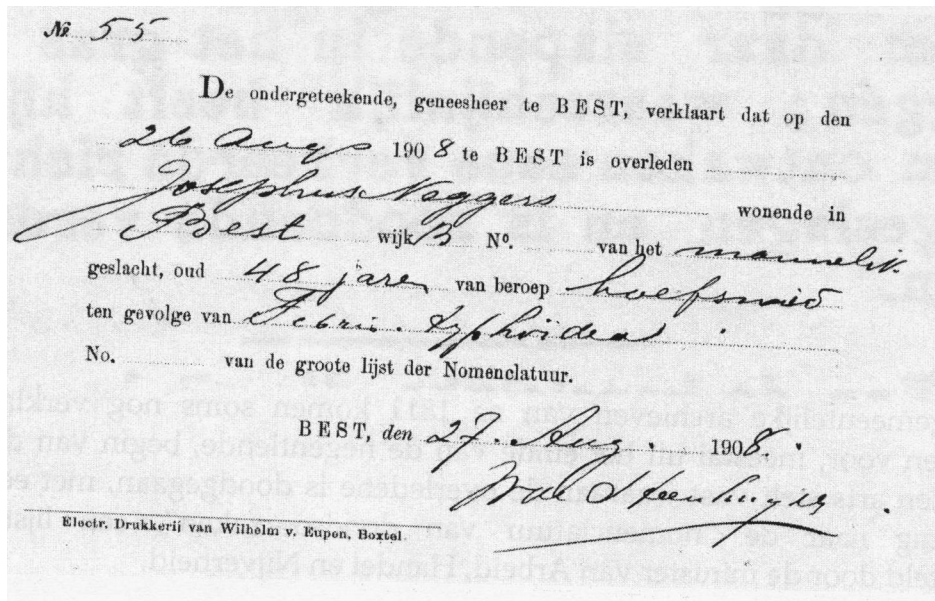 № 55
De ondergeteekende, geneesheer te BEST, verklaart dat op den
26 Augs 1908 te BEST is overleden
Josephus Neggers wonende in
Best wijk B No. van het mannelijk
geslacht, oud 48 jaren van beroep hoefsmid
ten gevolge van Febris typhoidea
No. van de groote lijst der Nomenclatuur.
BEST, den 27. Aug. 1908.
Electr. Drukkerij van Wilhelm v. Eupen, Boxtel.